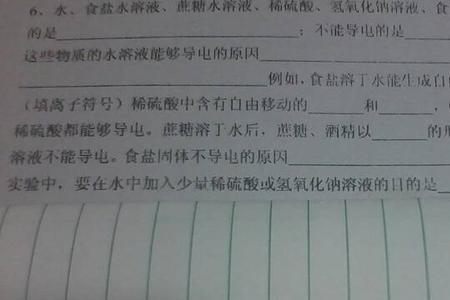 6、水、食盐水溶液、蔗糖水溶液、稀硫酸、氢氧化钠溶液、食
的是____________________；不能导电的是______
这些物质的水溶液能够导电的原因____________________
____________________例如,食盐溶于水能生成自
（填离子符号）稀硫酸中含有自由移动的______和______，
稀硫酸都能够导电。蔗糖溶于水后，蔗糖、酒精以______的形
溶液不能导电。食盐固体不导电的原因____________________
实验中，要在水中加入少量稀硫酸或氢氧化钠溶液的目的是__